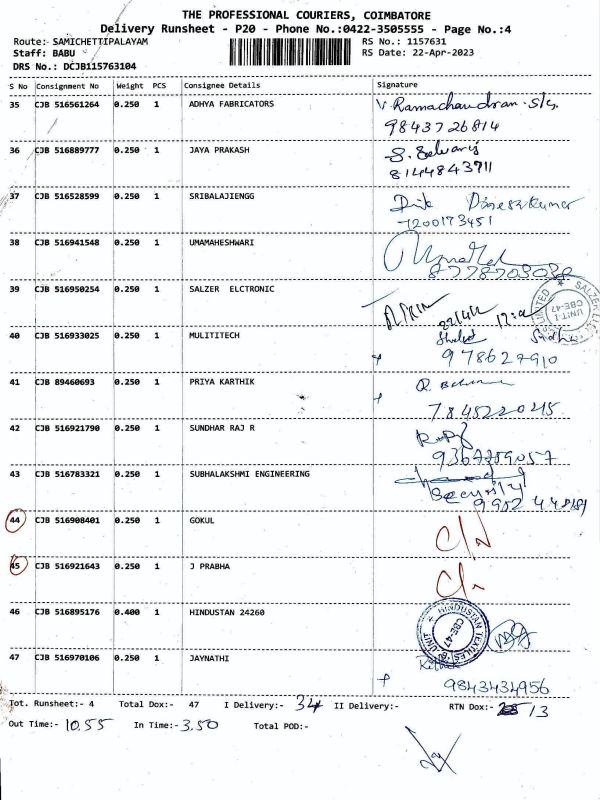 THE PROFESSIONAL COURIERS, COIMBATORE
Delivery Runsheet - P20 - Phone No.:0422-3505555 - Page No.:4
Route:- SAMICHETTIPALAYAM RS No.: 1157631
Staff: BABU RS Date: 22-Apr-2023
DRS No.: DCJB115763104
S No Consignment No Weight PCS Consignee Details Signature
35 CJB 516561264 0.250 1 ADHYA FABRICATORS V. Ramachandran
9843726814
36 CJB 516889777 0.250 1 JAYA PRAKASH
8144843911
37 CJB 516528599 0.250 1 SRIBALAJIENGG Dineshkumar
7200173451
38 CJB 516941548 0.250 1 UMAMAHESHWARI
39 CJB 516950254 0.250 1 SALZER ELCTRONIC
UNIT-I
CBE-47
40 CJB 516933025 0.250 1 MULITITECH
978627910
41 CJB 89460693 0.250 1 PRIYA KARTHIK
7845220215
42 CJB 516921790 0.250 1 SUNDHAR RAJ R
9367759057
43 CJB 516783321 0.250 1 SUBHALAKSHMI ENGINEERING
Security
44 CJB 516908401 0.250 1 GOKUL
45 CJB 516921643 0.250 1 J PRABHA
46 CJB 516895176 0.400 1 HINDUSTAN 24260 HINDUSTAN TEXTILES
CBE-47
47 CJB 516970106 0.250 1 JAYNATHI
9843434956
Tot. Runsheet:- 4 Total Dox:- 47 I Delivery:- 34 II Delivery:- RTN Dox:- 13
Out Time:- 10.55 In Time:- 3.50 Total POD:-